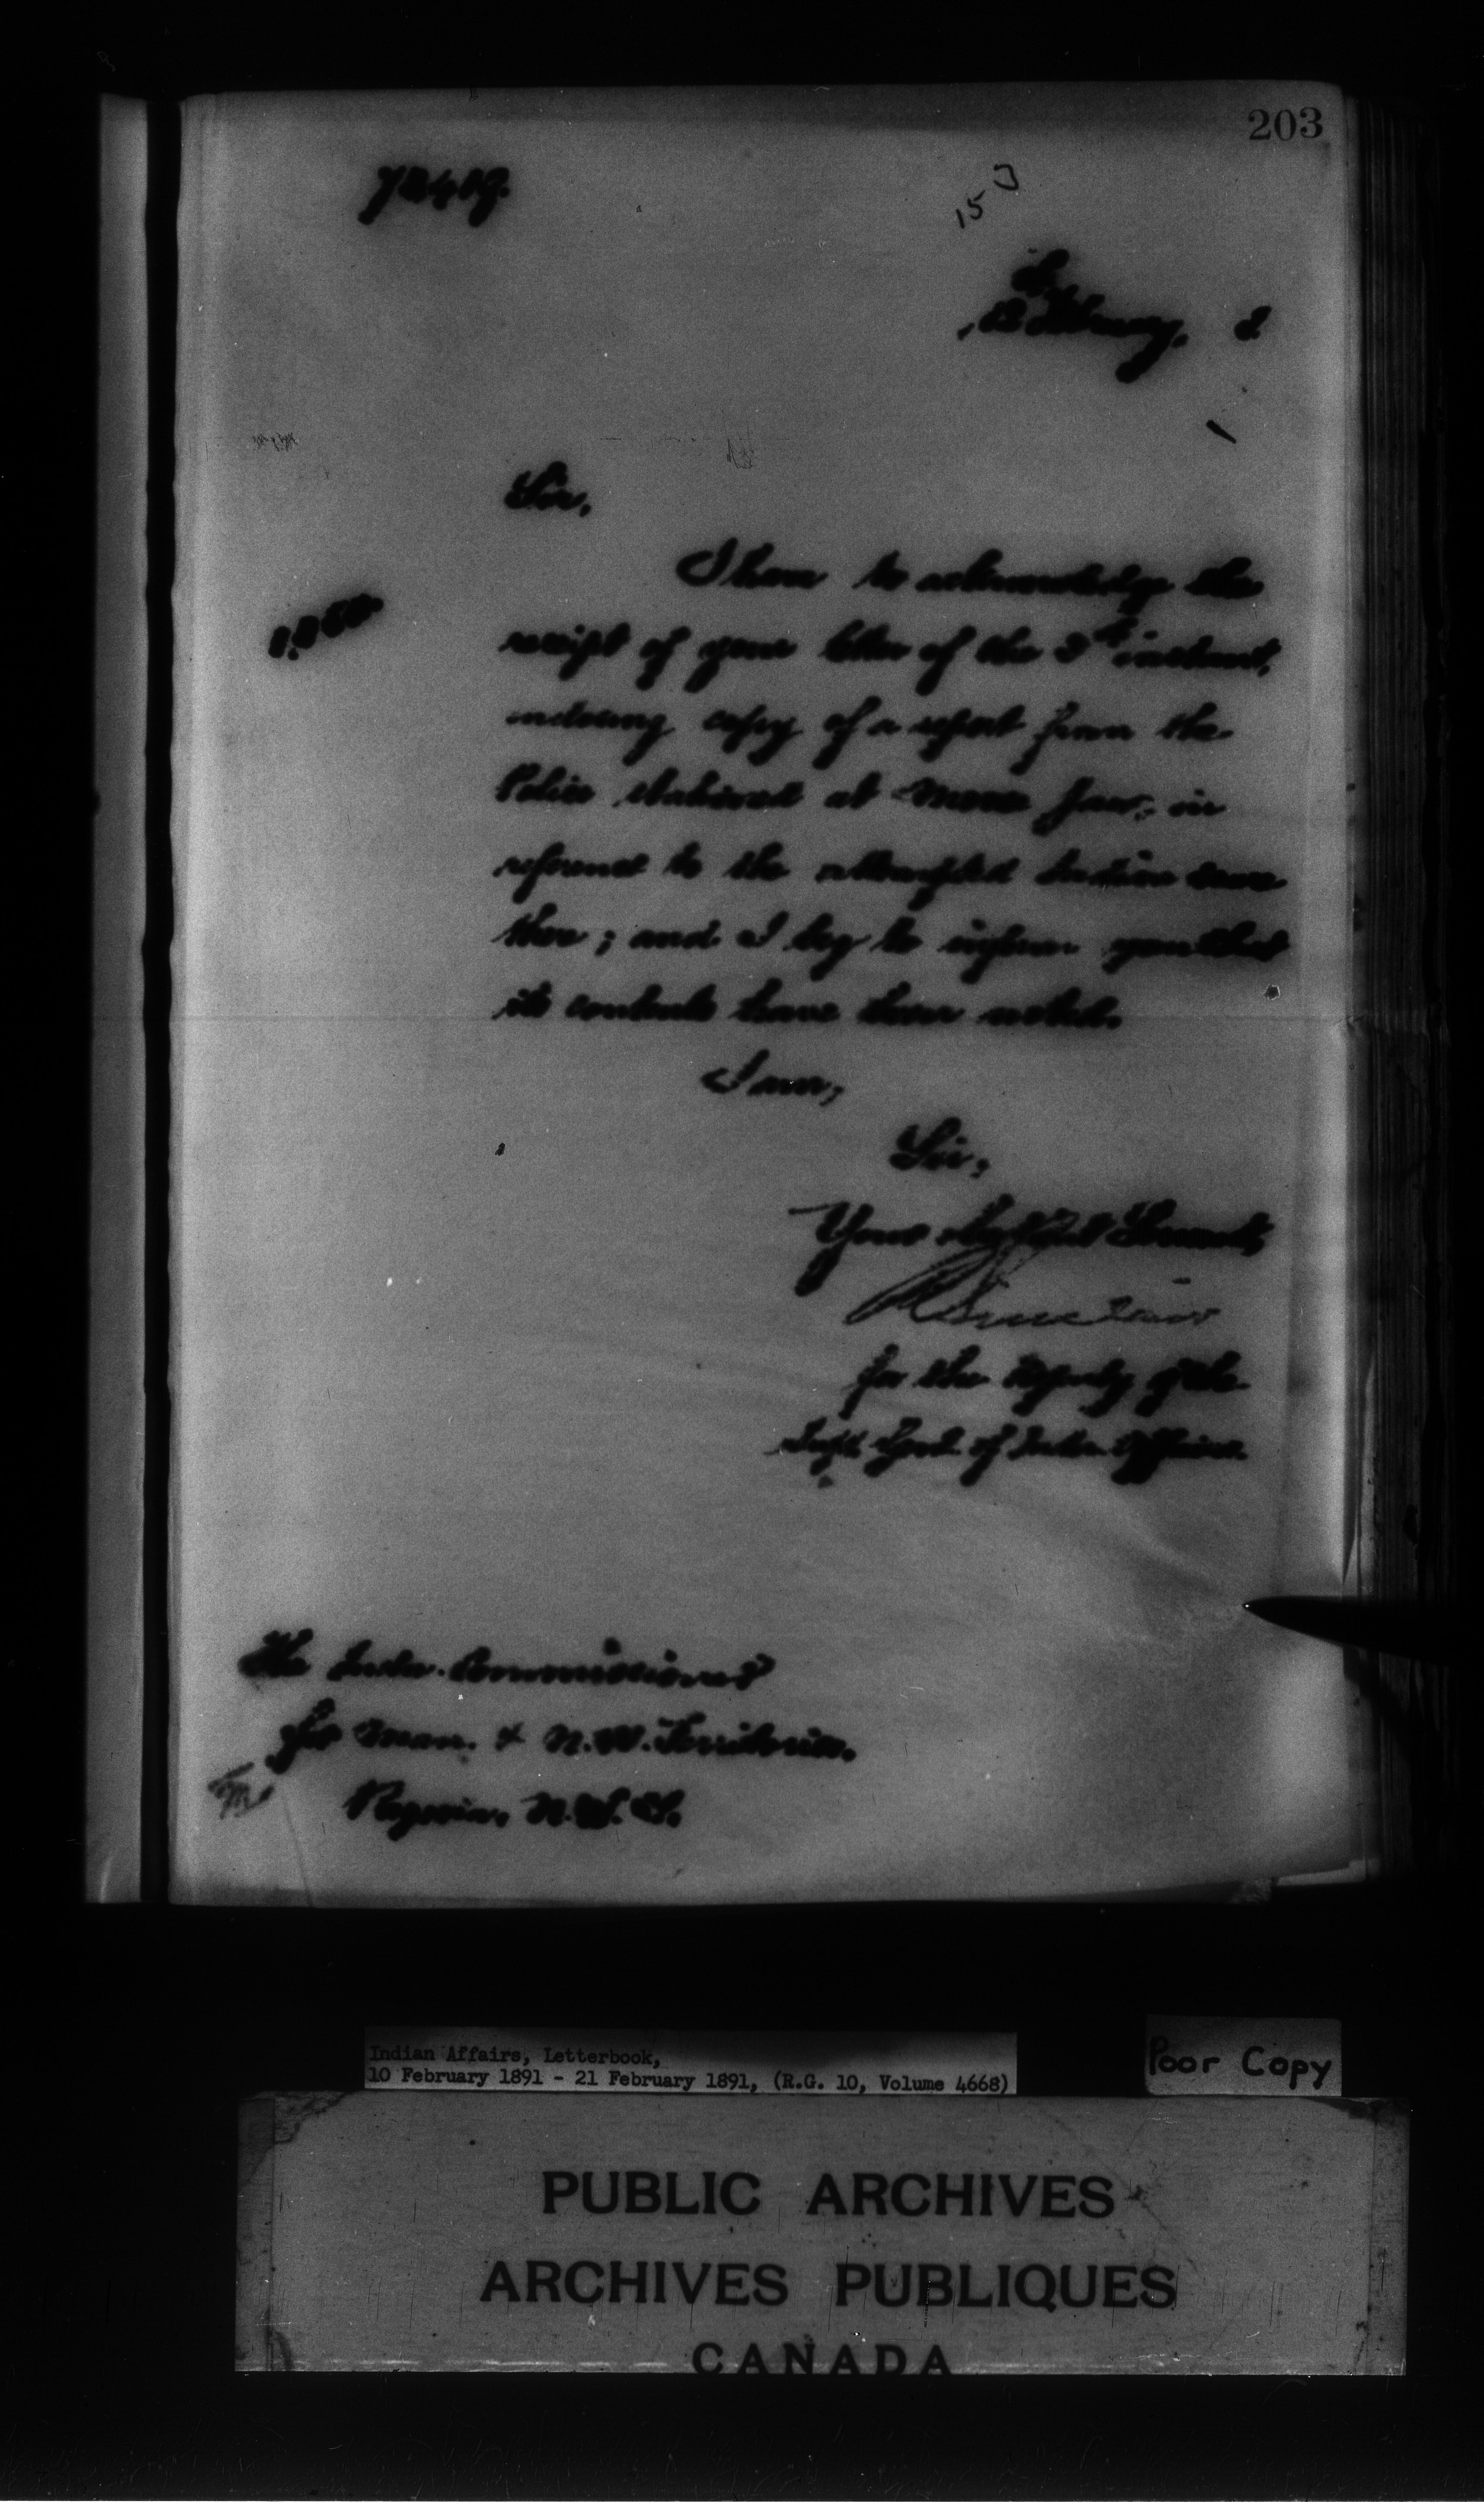 203
72419.
15 J
12 February,
Sir,
I have to acknowledge the
receipt of your letter of the 3rd instant,
inclosing copy of a report from the
Police stationed at Moose Jaw, in
reference to the attempted Indian
there; and I beg to inform you that
its contents have been noted.
I am,
Sir,
Your Obedient Servant,
R Sinclair
for the Deputy of the
Supt. Genl. of Indn. Affairs.
The Indn. Commissioner
for Man. & N.W. Territories.
Regina, N.W.T.
Indian Affairs, Letterbook,
10 February 1891 - 21 February 1891, (R.G. 10, Volume 4668)
Poor Copy
PUBLIC ARCHIVES
ARCHIVES PUBLIQUES
CANADA